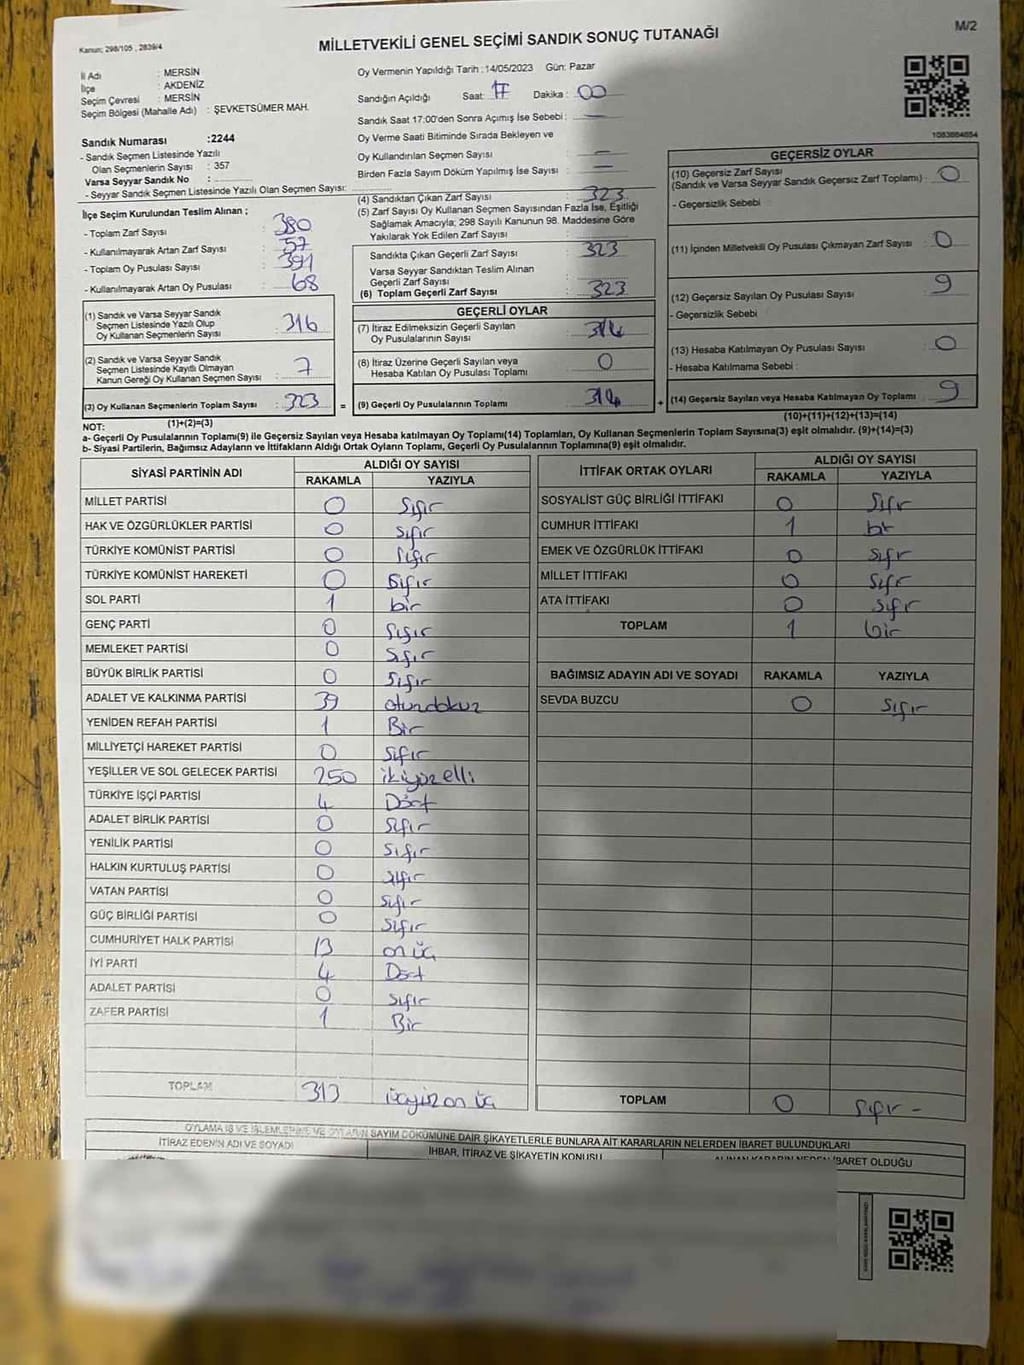 Kanun; 298/105 , 2839/4
MİLLETVEKİLİ GENEL SEÇİMİ SANDIK SONUÇ TUTANAĞI
M/2
İl Adı : MERSİN
İlçe : AKDENİZ
Seçim Çevresi : MERSİN
Seçim Bölgesi (Mahalle Adı) : ŞEVKETSÜMER MAH.
Sandık Numarası :2244
- Sandık Seçmen Listesinde Yazılı
Olan Seçmenlerin Sayısı : 357
Varsa Seyyar Sandık No :
- Seyyar Sandık Seçmen Listesinde Yazılı Olan Seçmen Sayısı:
Oy Vermenin Yapıldığı Tarih :14/05/2023 Gün: Pazar
Sandığın Açıldığı Saat: 17 Dakika : 00
Sandık Saat 17:00'den Sonra Açımış İse Sebebi : —
Oy Verme Saati Bitiminde Sırada Bekleyen ve
Oy Kullandırılan Seçmen Sayısı : —
Birden Fazla Sayım Döküm Yapılmış İse Sayısı : —
1083664654
İlçe Seçim Kurulundan Teslim Alınan ;
- Toplam Zarf Sayısı : 380
- Kullanılmayarak Artan Zarf Sayısı : 57
- Toplam Oy Pusulası Sayısı : 391
- Kullanılmayarak Artan Oy Pusulası : 68
(1) Sandık ve Varsa Seyyar Sandık
Seçmen Listesinde Yazılı Olup
Oy Kullanan Seçmenlerin Sayısı : 316
(2) Sandık ve Varsa Seyyar Sandık
Seçmen Listesinde Kayıtlı Olmayan
Kanun Gereği Oy Kullanan Seçmen Sayısı : 7
(3) Oy Kullanan Seçmenlerin Toplam Sayısı : 323
(1)+(2)=(3)
(4) Sandıktan Çıkan Zarf Sayısı : 323
(5) Zarf Sayısı Oy Kullanan Seçmen Sayısından Fazla İse, Eşitliği
Sağlamak Amacıyla; 298 Sayılı Kanunun 98. Maddesine Göre
Yakılarak Yok Edilen Zarf Sayısı :
Sandıkta Çıkan Geçerli Zarf Sayısı : 323
Varsa Seyyar Sandıktan Teslim Alınan
Geçerli Zarf Sayısı :
(6) Toplam Geçerli Zarf Sayısı : 323
GEÇERLİ OYLAR
(7) İtiraz Edilmeksizin Geçerli Sayılan
Oy Pusulalarının Sayısı : 314
(8) İtiraz Üzerine Geçerli Sayılan veya
Hesaba Katılan Oy Pusulası Toplamı : 0
= (9) Geçerli Oy Pusulalarının Toplamı : 314 +
GEÇERSİZ OYLAR
(10) Geçersiz Zarf Sayısı
(Sandık ve Varsa Seyyar Sandık Geçersiz Zarf Toplamı) : 0
- Geçersizlik Sebebi
(11) İçinden Milletvekili Oy Pusulası Çıkmayan Zarf Sayısı : 0
(12) Geçersiz Sayılan Oy Pusulası Sayısı : 9
- Geçersizlik Sebebi
(13) Hesaba Katılmayan Oy Pusulası Sayısı : 0
- Hesaba Katılmama Sebebi :
(14) Geçersiz Sayılan veya Hesaba Katılmayan Oy Toplamı : 9
(10)+(11)+(12)+(13)=(14)
NOT:
a- Geçerli Oy Pusulalarının Toplamı(9) ile Geçersiz Sayılan veya Hesaba katılmayan Oy Toplamı(14) Toplamları, Oy Kullanan Seçmenlerin Toplam Sayısına(3) eşit olmalıdır. (9)+(14)=(3)
b- Siyasi Partilerin, Bağımsız Adayların ve İttifakların Aldığı Ortak Oyların Toplamı, Geçerli Oy Pusulalarının Toplamına(9) eşit olmalıdır.
SİYASİ PARTİNİN ADI ALDIĞI OY SAYISI
RAKAMLA YAZIYLA
MİLLET PARTİSİ 0 Sıfır
HAK VE ÖZGÜRLÜKLER PARTİSİ 0 Sıfır
TÜRKİYE KOMÜNİST PARTİSİ 0 Sıfır
TÜRKİYE KOMÜNİST HAREKETİ 0 Sıfır
SOL PARTİ 1 bir
GENÇ PARTİ 0 Sıfır
MEMLEKET PARTİSİ 0 Sıfır
BÜYÜK BİRLİK PARTİSİ 0 Sıfır
ADALET VE KALKINMA PARTİSİ 39 otuzdokuz
YENİDEN REFAH PARTİSİ 1 Bir
MİLLİYETÇİ HAREKET PARTİSİ 0 Sıfır
YEŞİLLER VE SOL GELECEK PARTİSİ 250 ikiyüzelli
TÜRKİYE İŞÇİ PARTİSİ 4 Dört
ADALET BİRLİK PARTİSİ 0 Sıfır
YENİLİK PARTİSİ 0 Sıfır
HALKIN KURTULUŞ PARTİSİ 0 Sıfır
VATAN PARTİSİ 0 Sıfır
GÜÇ BİRLİĞİ PARTİSİ 0 Sıfır
CUMHURİYET HALK PARTİSİ 13 onüç
İYİ PARTİ 4 Dört
ADALET PARTİSİ 0 Sıfır
ZAFER PARTİSİ 1 Bir
TOPLAM 313 üçyüz on üç
İTTİFAK ORTAK OYLARI ALDIĞI OY SAYISI
RAKAMLA YAZIYLA
SOSYALİST GÜÇ BİRLİĞİ İTTİFAKI 0 Sıfır
CUMHUR İTTİFAKI 1 bir
EMEK VE ÖZGÜRLÜK İTTİFAKI 0 Sıfır
MİLLET İTTİFAKI 0 Sıfır
ATA İTTİFAKI 0 Sıfır
TOPLAM 1 bir
BAĞIMSIZ ADAYIN ADI VE SOYADI RAKAMLA YAZIYLA
SEVDA BUZCU 0 Sıfır
TOPLAM 0 Sıfır -
OYLAMA İŞ VE İŞLEMLERİNE VE OYLARIN SAYIM DÖKÜMÜNE DAİR ŞİKAYETLERLE BUNLARA AİT KARARLARIN NELERDEN İBARET BULUNDUKLARI
İTİRAZ EDENİN ADI VE SOYADI İHBAR, İTİRAZ VE ŞİKAYETİN KONUSU ALINAN KARARIN NEDEN İBARET OLDUĞU